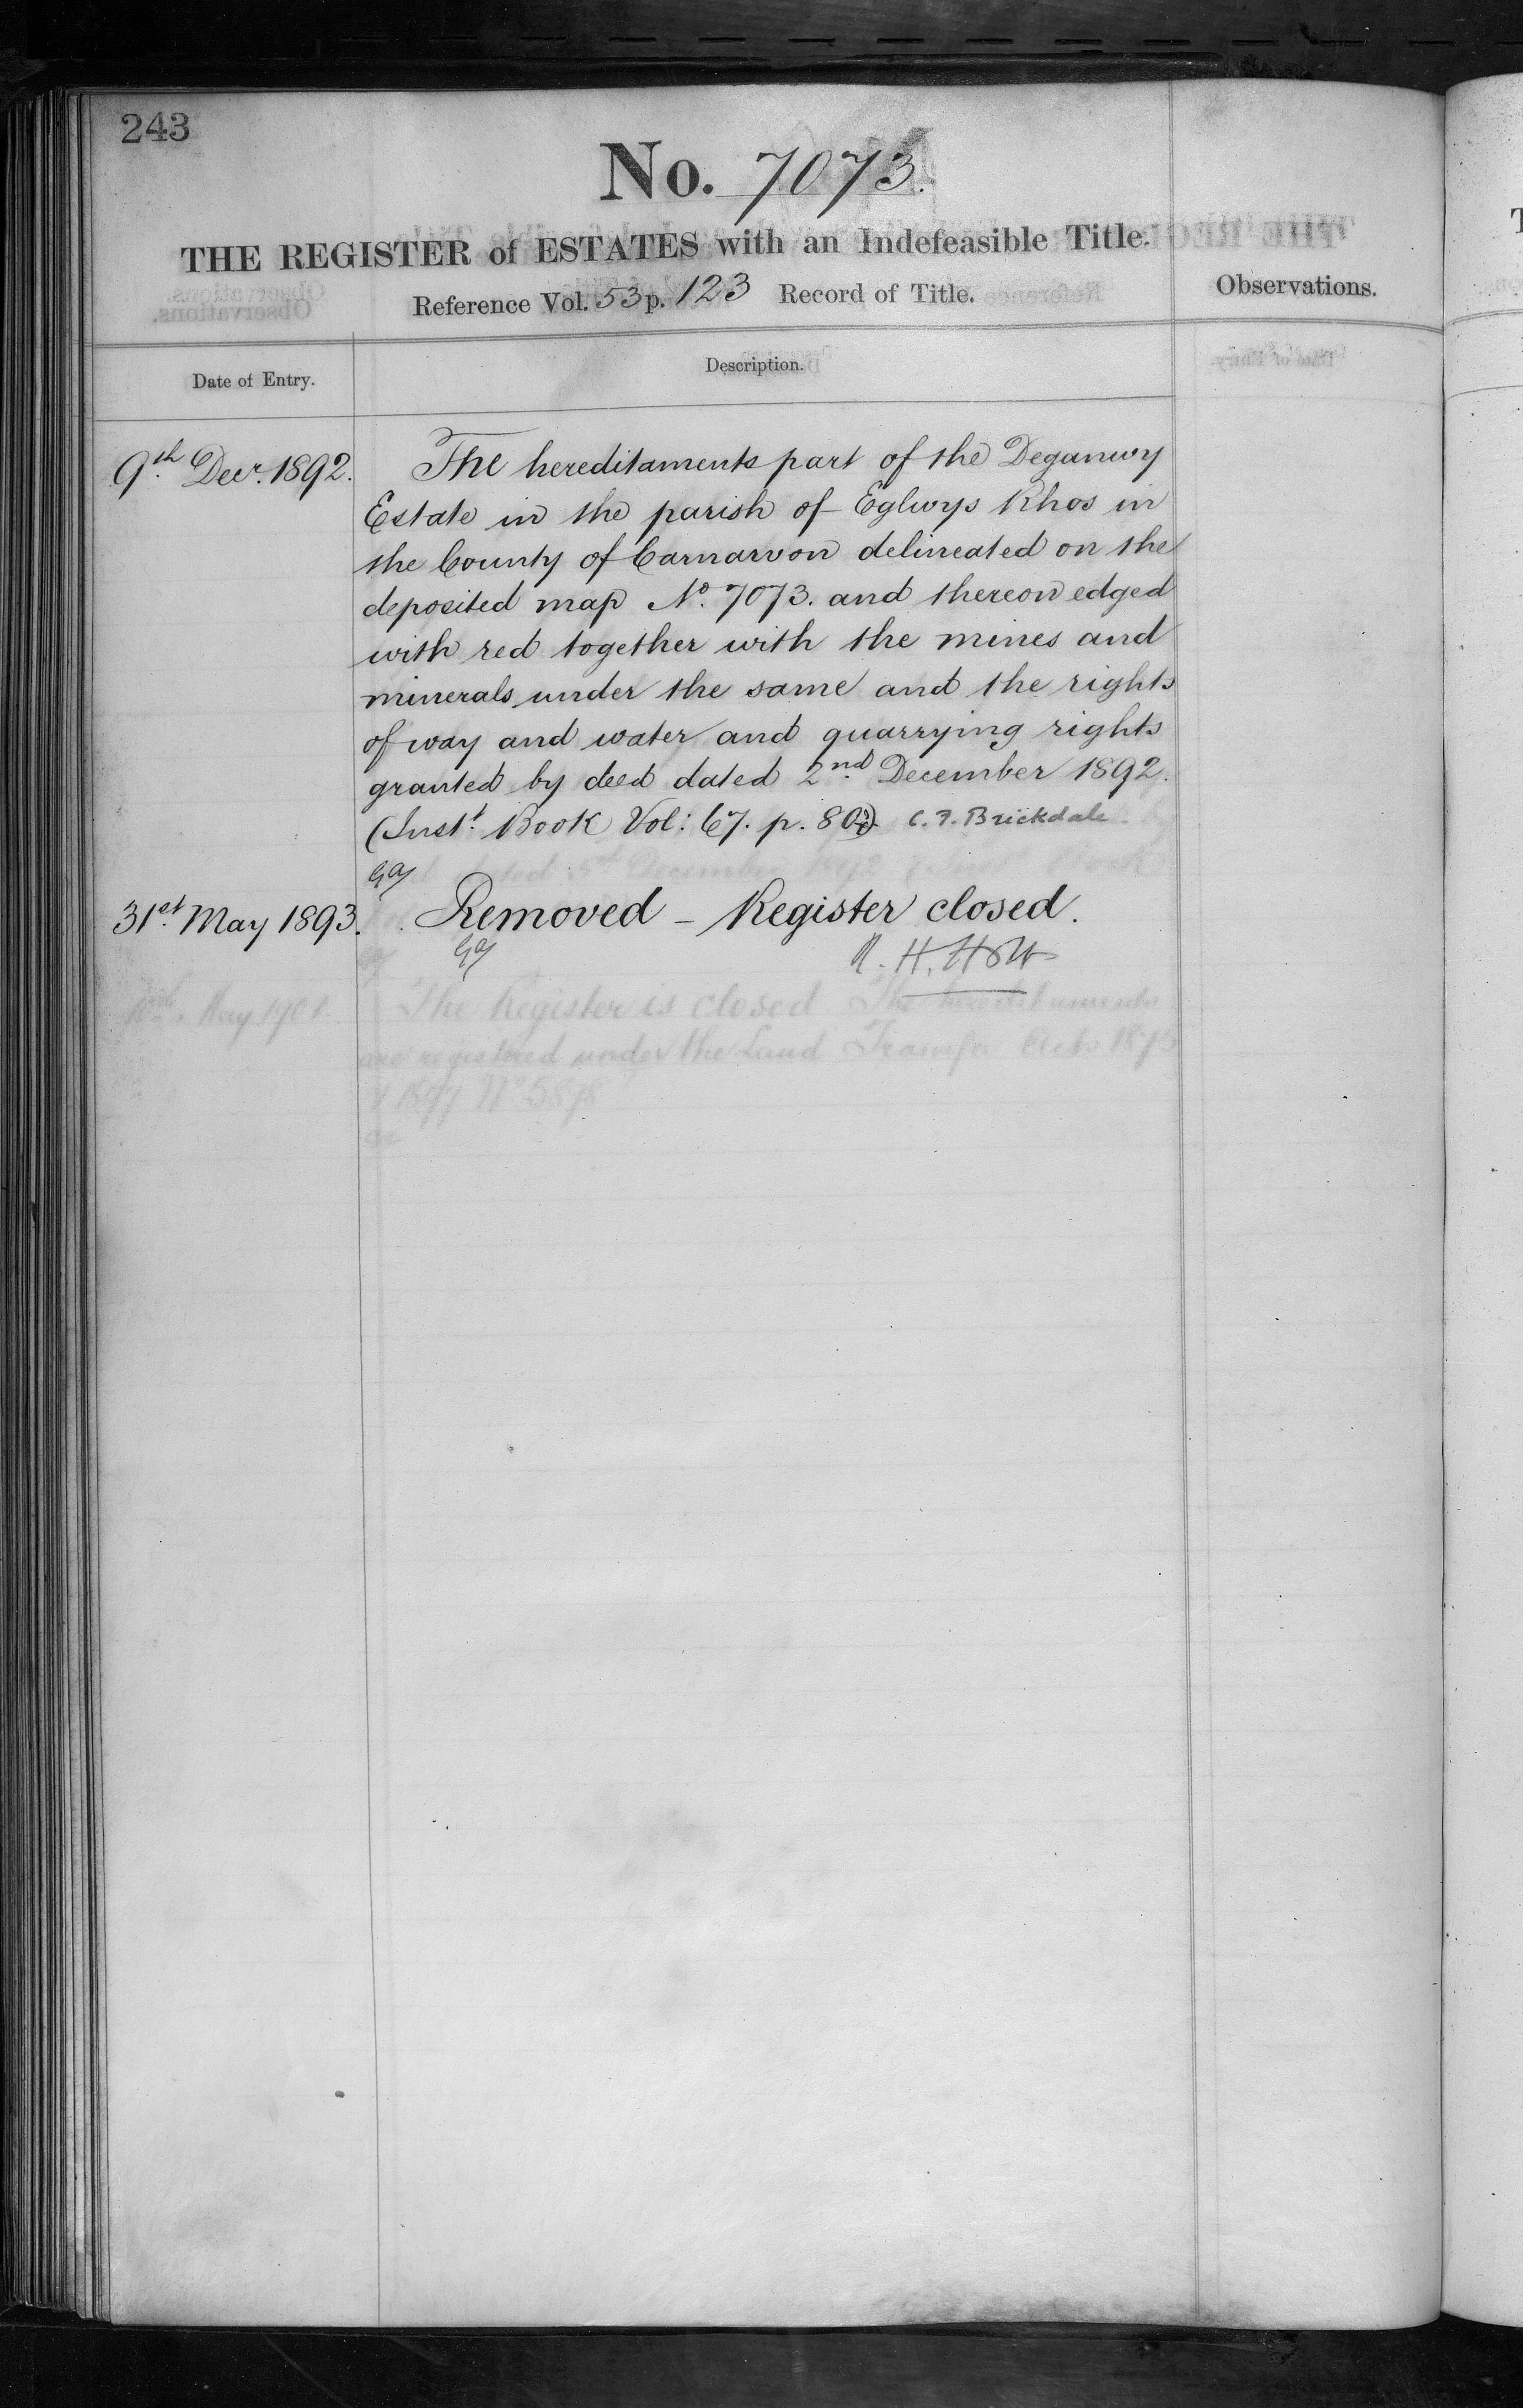 243
No. 7073.
THE REGISTER of ESTATES with an Indefeasible Title.
Reference Vol. 53 p. 123 Record of Title.
Observations.
Date of Entry.
Description.
9th Decr. 1892.
The hereditaments part of the Deganwy
Estate in the parish of Eglwys Rhos in
the County of Carnarvon delineated on the
deposited map No. 7073. and thereon edged
with red together with the mines and
minerals under the same and the rights
of way and water and quarrying rights
granted by deed dated 2nd December 1892.
(Inst. Book Vol: 67. p. 80) C. F. Brickdale
31st May 1893.
Removed – Register closed.
R. H. Holt
May 1901.
The Register is closed The hereditaments
are registered under the Land Transfer Acts 1875
& 1897 No 5878